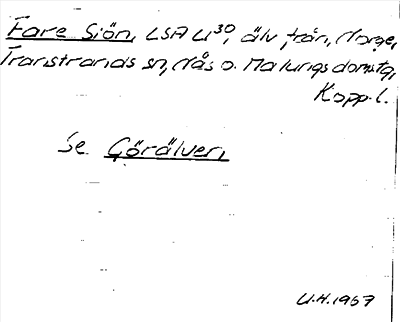 Fare Siön, LSA U³⁰, älv från Norge,
Transtrands sn, Nås o. Malungs domstg,
Kopp. l.
Se Görälven
U.H. 1957